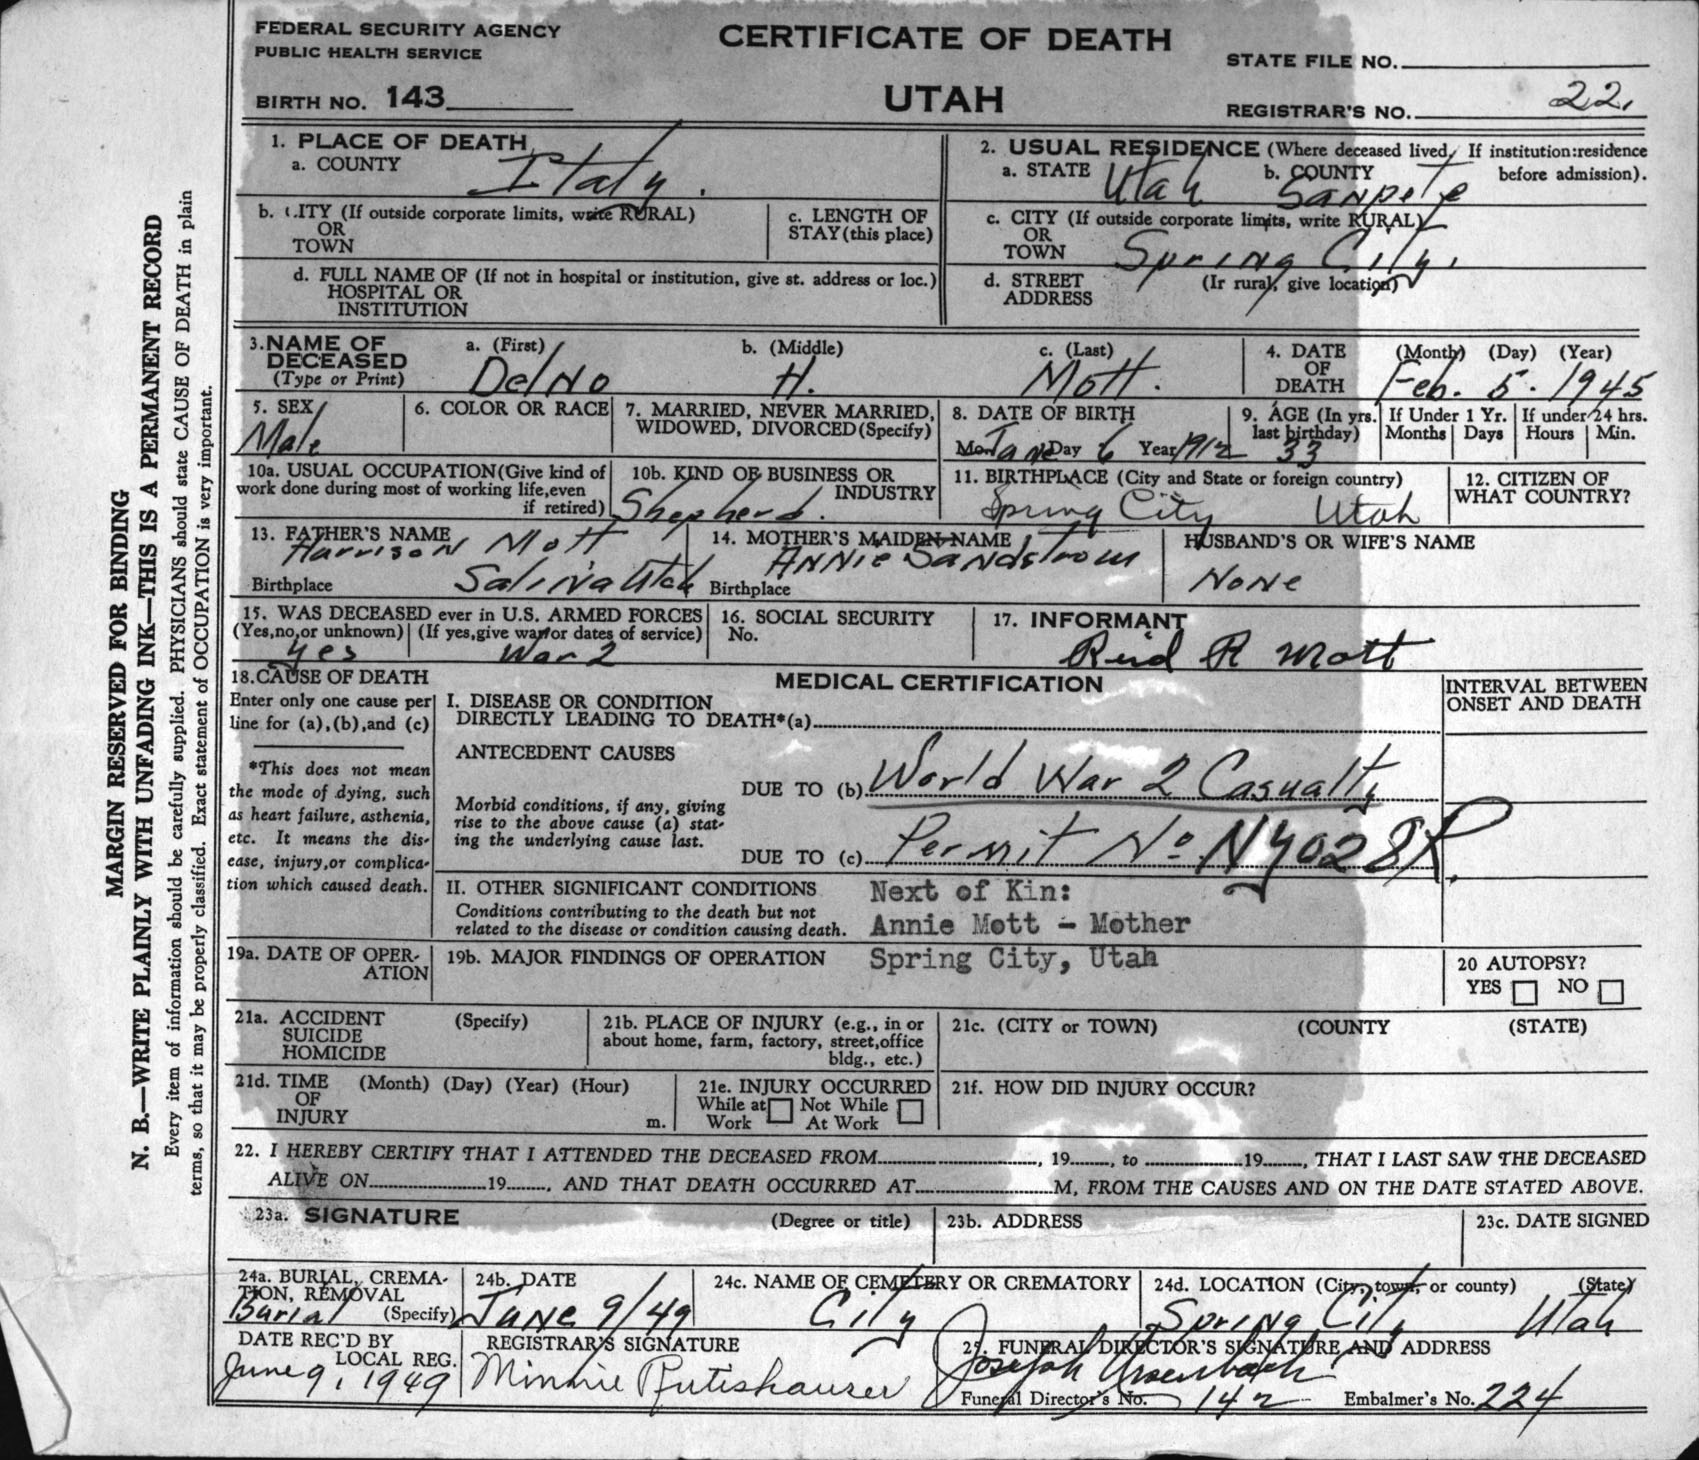 FEDERAL SECURITY AGENCY
PUBLIC HEALTH SERVICE
CERTIFICATE OF DEATH
STATE FILE NO.
BIRTH NO. 143
UTAH
REGISTRAR'S NO. 22.
1. PLACE OF DEATH
a. COUNTY Italy.
2. USUAL RESIDENCE (Where deceased lived, If institution:residence before admission).
a. STATE Utah b. COUNTY Sanpete
b. CITY (If outside corporate limits, write RURAL)
OR
TOWN
c. LENGTH OF
STAY (this place)
c. CITY (If outside corporate limits, write RURAL)
OR
TOWN Spring City.
d. FULL NAME OF (If not in hospital or institution, give st. address or loc.)
HOSPITAL OR
INSTITUTION
d. STREET (Ir rural, give location)
ADDRESS
3. NAME OF
DECEASED
(Type or Print)
a. (First) DelNo
b. (Middle) H.
c. (Last) Mott.
4. DATE
OF
DEATH
(Month) (Day) (Year)
Feb. 5. 1945
5. SEX
Male
6. COLOR OR RACE
7. MARRIED, NEVER MARRIED,
WIDOWED, DIVORCED (Specify)
8. DATE OF BIRTH
Mo. Jan Day 6 Year 1912
9. AGE (In yrs.
last birthday)
33
If Under 1 Yr.
Months | Days
If under 24 hrs.
Hours | Min.
10a. USUAL OCCUPATION (Give kind of
work done during most of working life, even
if retired)
10b. KIND OF BUSINESS OR
INDUSTRY
Shepherd.
11. BIRTHPLACE (City and State or foreign country)
Spring City Utah
12. CITIZEN OF
WHAT COUNTRY?
13. FATHER'S NAME
Harrison Mott
Birthplace Salina Utah
14. MOTHER'S MAIDEN NAME
Annie Sandstrom
Birthplace
HUSBAND'S OR WIFE'S NAME
None
15. WAS DECEASED ever in U.S. ARMED FORCES
(Yes, no, or unknown) | (If yes, give war or dates of service)
yes War 2
16. SOCIAL SECURITY
No.
17. INFORMANT
Reid R Mott
18. CAUSE OF DEATH
Enter only one cause per
line for (a), (b), and (c)
*This does not mean
the mode of dying, such
as heart failure, asthenia,
etc. It means the dis-
ease, injury, or complica-
tion which caused death.
MEDICAL CERTIFICATION
INTERVAL BETWEEN
ONSET AND DEATH
I. DISEASE OR CONDITION
DIRECTLY LEADING TO DEATH*(a)
ANTECEDENT CAUSES
Morbid conditions, if any, giving
rise to the above cause (a) stat-
ing the underlying cause last.
DUE TO (b) World War 2 Casualty
DUE TO (c) Permit No NY028R.
II. OTHER SIGNIFICANT CONDITIONS
Conditions contributing to the death but not
related to the disease or condition causing death.
Next of Kin:
Annie Mott - Mother
Spring City, Utah
19a. DATE OF OPER-
ATION
19b. MAJOR FINDINGS OF OPERATION
20 AUTOPSY?
YES NO
21a. ACCIDENT (Specify)
SUICIDE
HOMICIDE
21b. PLACE OF INJURY (e.g., in or
about home, farm, factory, street, office
bldg., etc.)
21c. (CITY or TOWN) (COUNTY (STATE)
21d. TIME (Month) (Day) (Year) (Hour)
OF
INJURY m.
21e. INJURY OCCURRED
While at Not While
Work At Work
21f. HOW DID INJURY OCCUR?
22. I HEREBY CERTIFY THAT I ATTENDED THE DECEASED FROM , 19 , to 19 , THAT I LAST SAW THE DECEASED
ALIVE ON 19 , AND THAT DEATH OCCURRED AT M, FROM THE CAUSES AND ON THE DATE STATED ABOVE.
23a. SIGNATURE (Degree or title)
23b. ADDRESS
23c. DATE SIGNED
24a. BURIAL, CREMA-
TION, REMOVAL
Burial (Specify)
24b. DATE
June 9/49
24c. NAME OF CEMETERY OR CREMATORY
City
24d. LOCATION (City, town, or county) (State)
Spring City Utah
DATE REC'D BY
LOCAL REG.
June 9, 1949
REGISTRAR'S SIGNATURE
Minnie Rutishauser
25. FUNERAL DIRECTOR'S SIGNATURE AND ADDRESS
Joseph Ursenbach
Funeral Director's No. 142 Embalmer's No. 224
MARGIN RESERVED FOR BINDING
N. B.—WRITE PLAINLY WITH UNFADING INK—THIS IS A PERMANENT RECORD
Every item of information should be carefully supplied. PHYSICIANS should state CAUSE OF DEATH in plain
terms, so that it may be properly classified. Exact statement of OCCUPATION is very important.